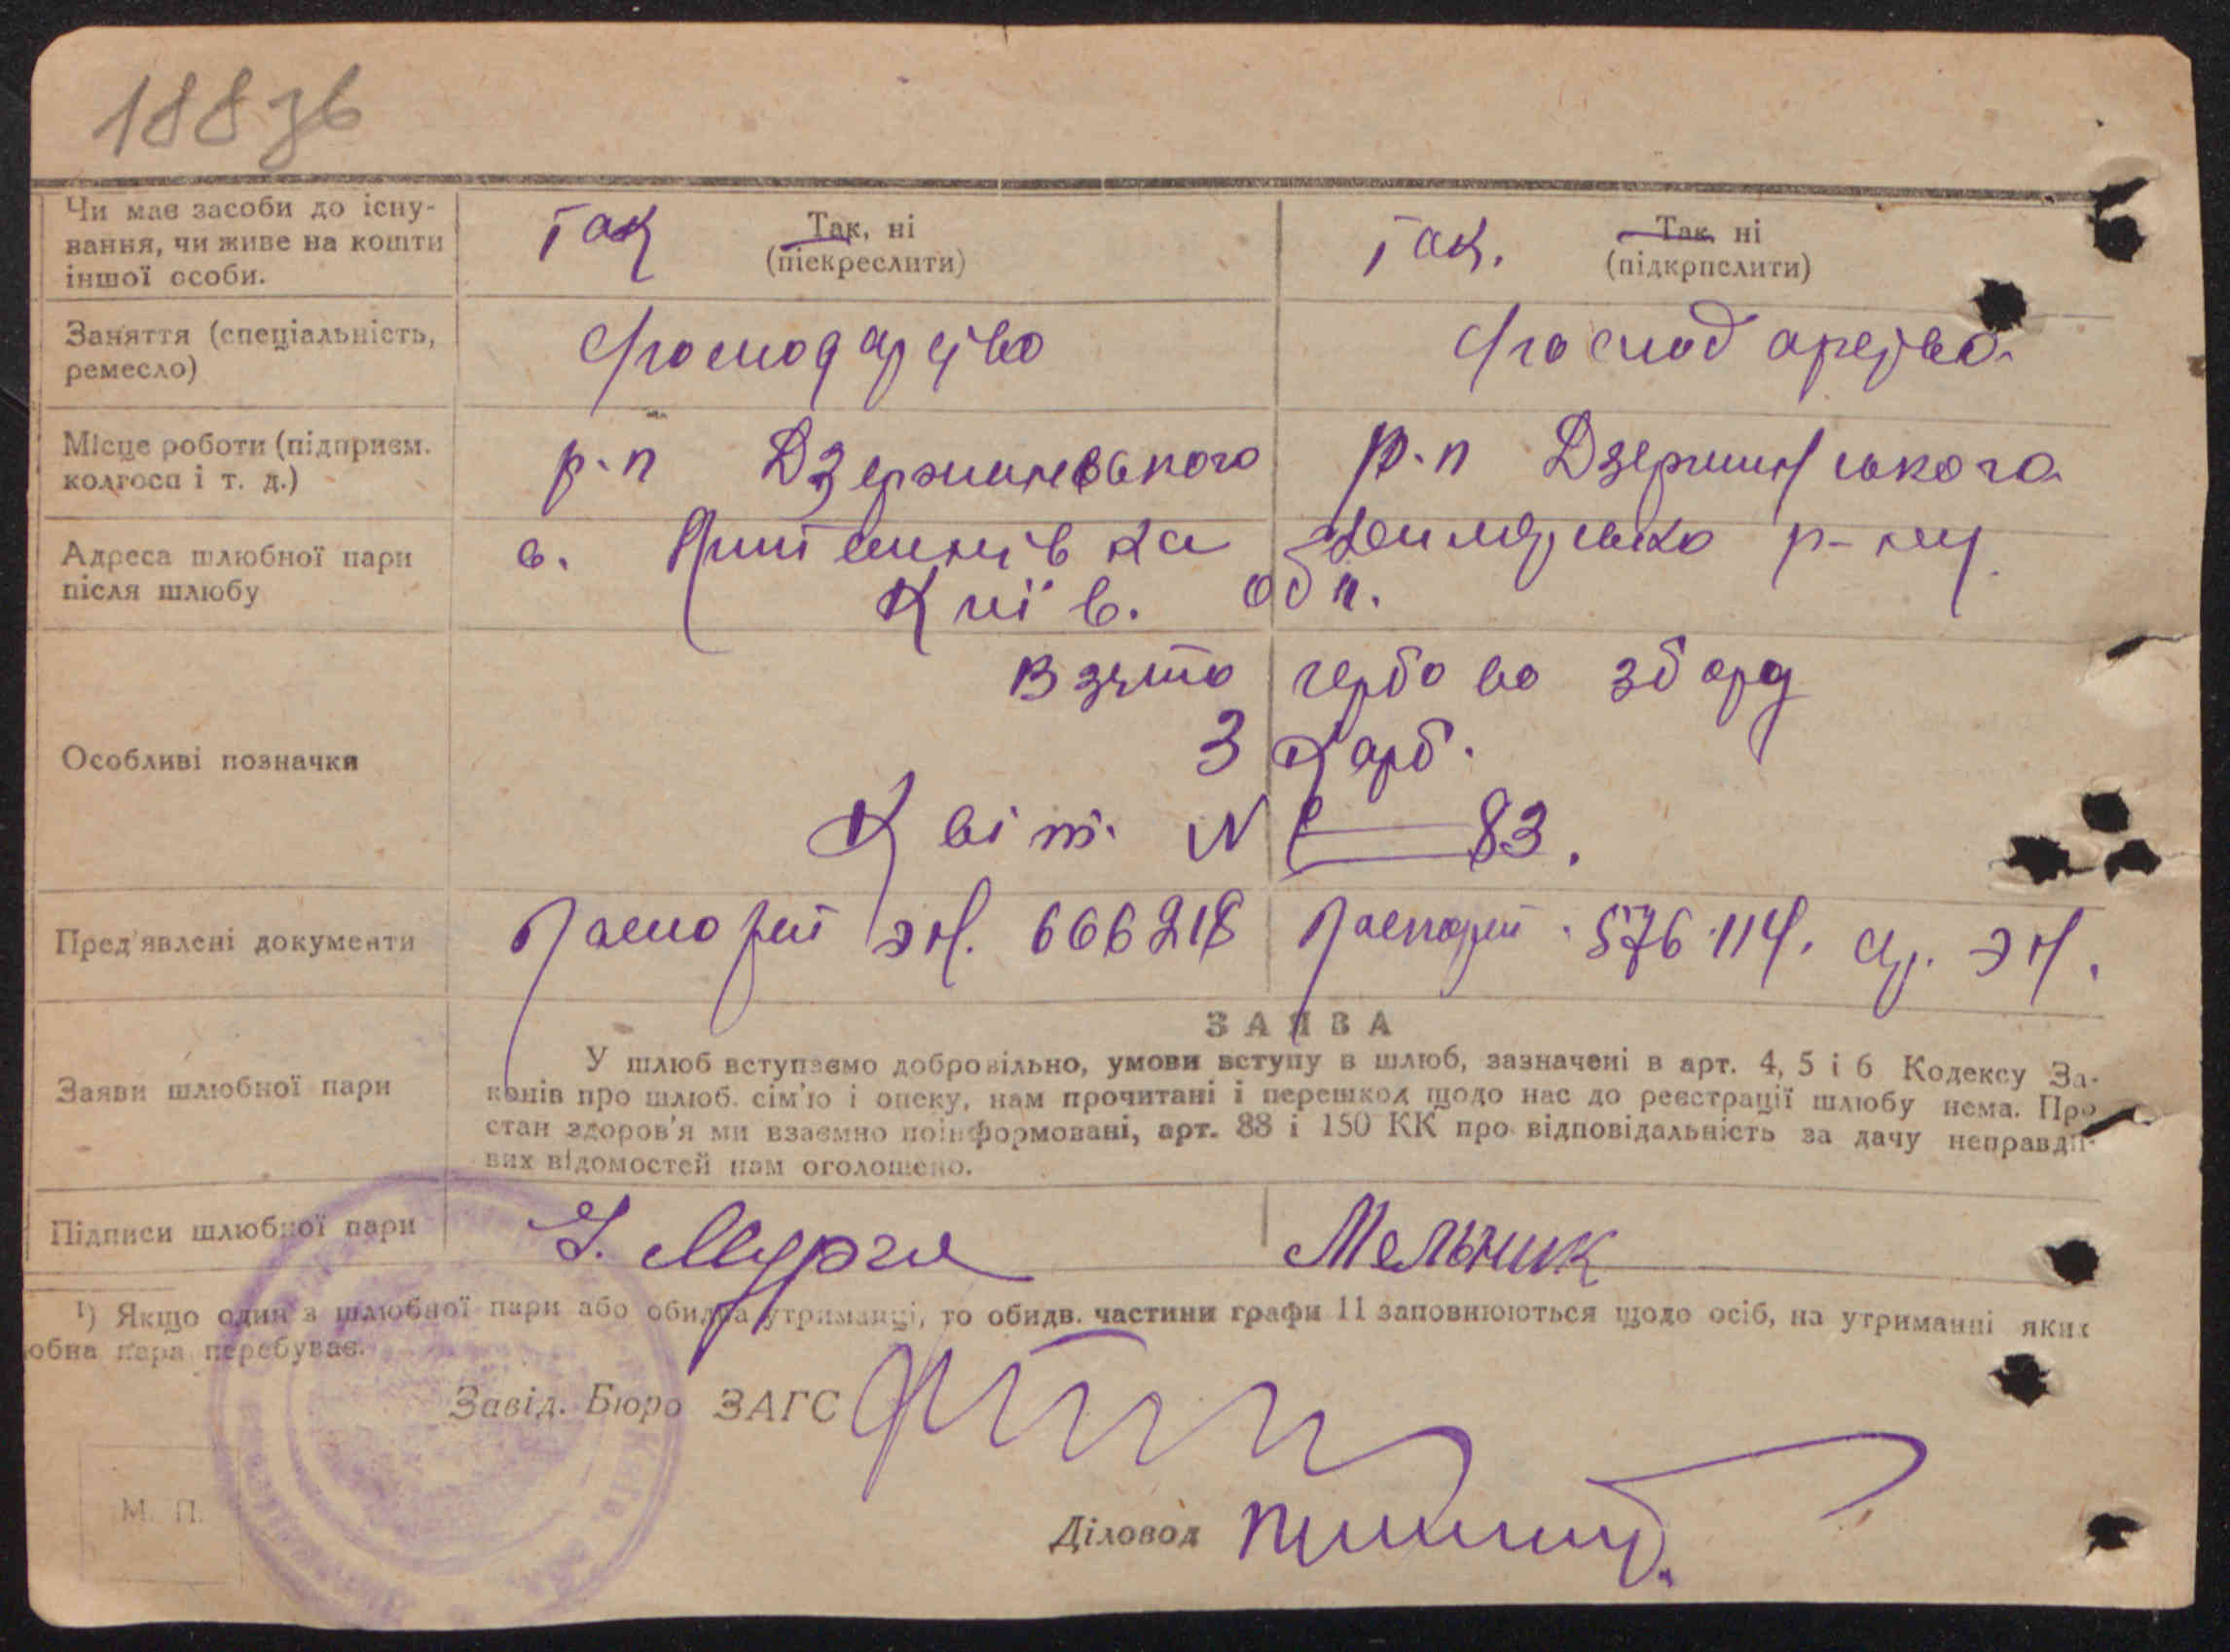 188 зв
Чи має засоби до існу-
вання, чи живе на кошти
іншої особи.
Так Так, ні
(піскреслити)
Так. Так, ні
(підкрпслити)
Заняття (спеціальність,
ремесло)
Господарство
Господарство
Місце роботи (підприєм.
колгосп і т. д.)
р-п Дзержинського
р-п Дзержинського
Адреса шлюбної пари
після шлюбу
с. р-ну
Київ. обл.
Особливі позначки
Взято гербово збору
3 Карб.
Квіт. № 83.
Пред'явлені документи
Паспорт ЭН. 666218
Паспорт 576114. ЭН.
Заяви шлюбної пари
ЗАЯВА
У шлюб вступаємо добровільно, умови вступу в шлюб, зазначені в арт. 4, 5 і 6 Кодексу За-
конів про шлюб. сім'ю і опеку, нам прочитані і перешкод щодо нас до реєстрації шлюбу нема. Про
стан здоров'я ми взаємно поінформовані, арт. 88 і 150 КК про відповідальність за дачу неправди-
вих відомостей нам оголошено.
Підписи шлюбної пари
Мельник
¹) Якщо один з шлюбної пари або обидва утриманці, то обидв. частини графи 11 заповнюються щодо осіб, на утриманні яких
юбна пара перебуває.
Завід. Бюро ЗАГС
М. П.
Діловод